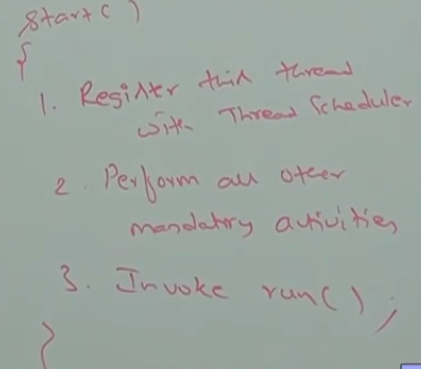 start( )
{
1. Register this thread
with Thread Scheduler
2. Perform all other
mandatory activities
3. Invoke run( ) ;
}